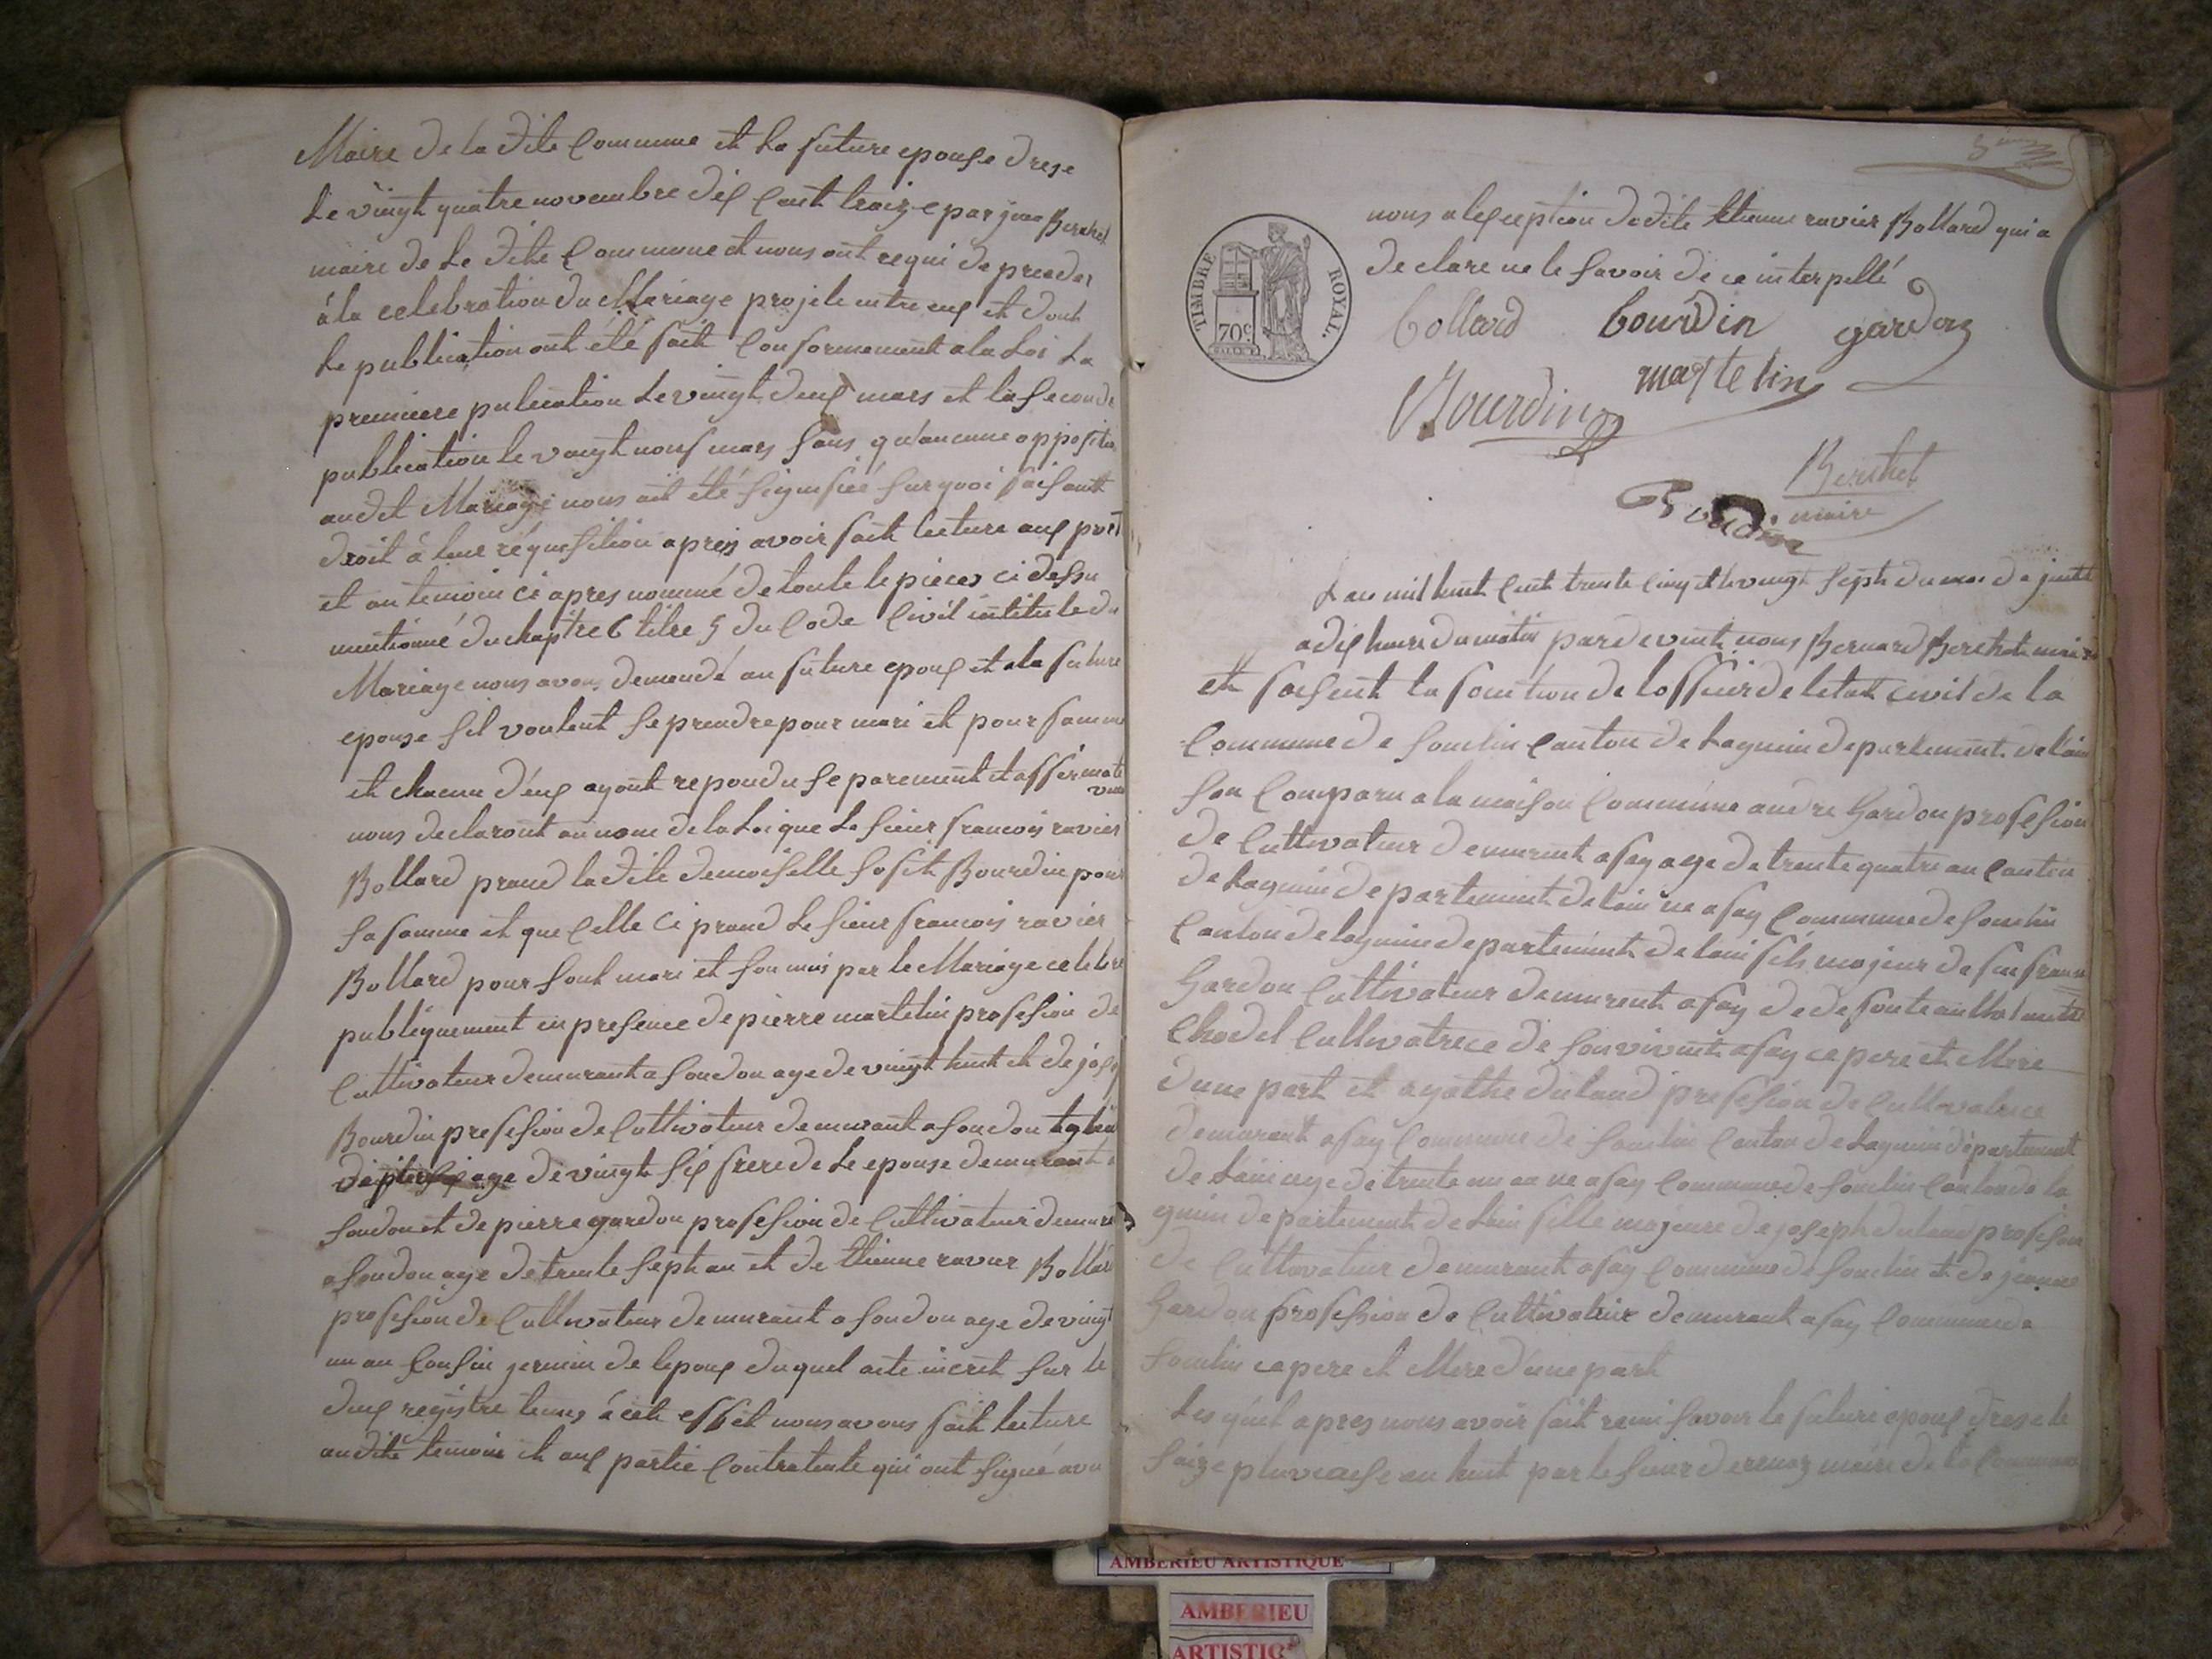 Maire de la dite Commune et la future epouse drese
le vingt quatre novembre dix cent treize par jean Berchet
maire de le dite Commune et nous ont requi de proceder
à la celebration du Mariage projete entre eux et dont
le publication ont été fait Conformement a la Loi La
premiere pulication le vingt deux mars et la seconde
publication le vingt neuf mars sans qu'aucune opposition
audit Mariage nous ait été signifiée sur quoi faisant
droit à leur réquisition apres avoir fait lecture aux parti
et au temoin ci apres nommé de toute le pieces ci dessu
mentionné du chapitre 6 titre 5 du Code Civil intitule du
Mariage nous avons demandé au future epoux et a la future
epouse sil voulent se prendre pour mari et pour famme
et chacun d'eux ayant repondu separement et affirmati
vem
nous declaront au nom de la Loi que le sieur francois ravier
Bollard prand la dite demoiselle Bourdin pour
sa famme et que Celle Ci prand le sieur francois ravier
Bollard pour sont mari et son unis par le Mariage celebre
publiquement en presence de pierre martelin profesion de
Cultivateur demurant a soudon age de vingt huit et de
Bourdin profesion de Cultivateur demurant a soudon
age de vingt six frere de le epouse demurant a
soudon et de pierre gardon profesion de Cultivateur demura
a soudon age de trente sept an et de Etienne ravier Bollard
profesion de Cultivateur demurant a soudon age de vingt
un an Cousin germin de lepoux duquel acte incrit sur le
deux registre tenus à cet effet nous avons fait lecture
audite temoin et aux partie Contratente qui ont signé avec
nous a lexception dedite Etienne ravier Bollard qui a
declare ne le savoir de ce interpellé
TIMBRE ROYAL.
70c
bollard bourdin gardon
martelin
Bourdin
Berchet
maire
Bourdin
Lan mil huit Cent trente Cinq et le vingt sept du moi de
a dix heure du matin pardevent nous Bernard Berchet maire
et faisent la fonction de lofficier de letat civil de la
Commune de souclin Canton de Lagnieu departement de lain
son Comparu a la maison Commune andre Gardon profesion
de Cultivateur demurent a fay age de trente quatre an Canton
de Lagnieu departement de lain ne a fay Commune de souclin
Canton de lagnieu departement de lain fils majeur de feu
Gardon Cultivateur demurent a fay de defunte
Chodel Cultivatrece de son vivent a fay ce pere et Mere
dune part et agathe duland profesion de Cultivatrice
demurant a fay Commune de souclin Canton de Lagnieu departement
de Lain age de trente un an ne a fay Commune de souclin Canton de la
gnieu departement de Lain fille majeure de joseph duland profesion
de Cultivateur demurant a fay Commune de souclin et de jeanne
Gardon profession de Cultivatrice demurant a fay Commune de
souclin ce pere et Mere d'une part
Les quel apres nous avoir fait remi savoir le future epoux drese le
saize pluviose an huit par le sieur maire de la Commune
AMBERIEU ARTISTIQUE
AMBERIEU
ARTISTIQ